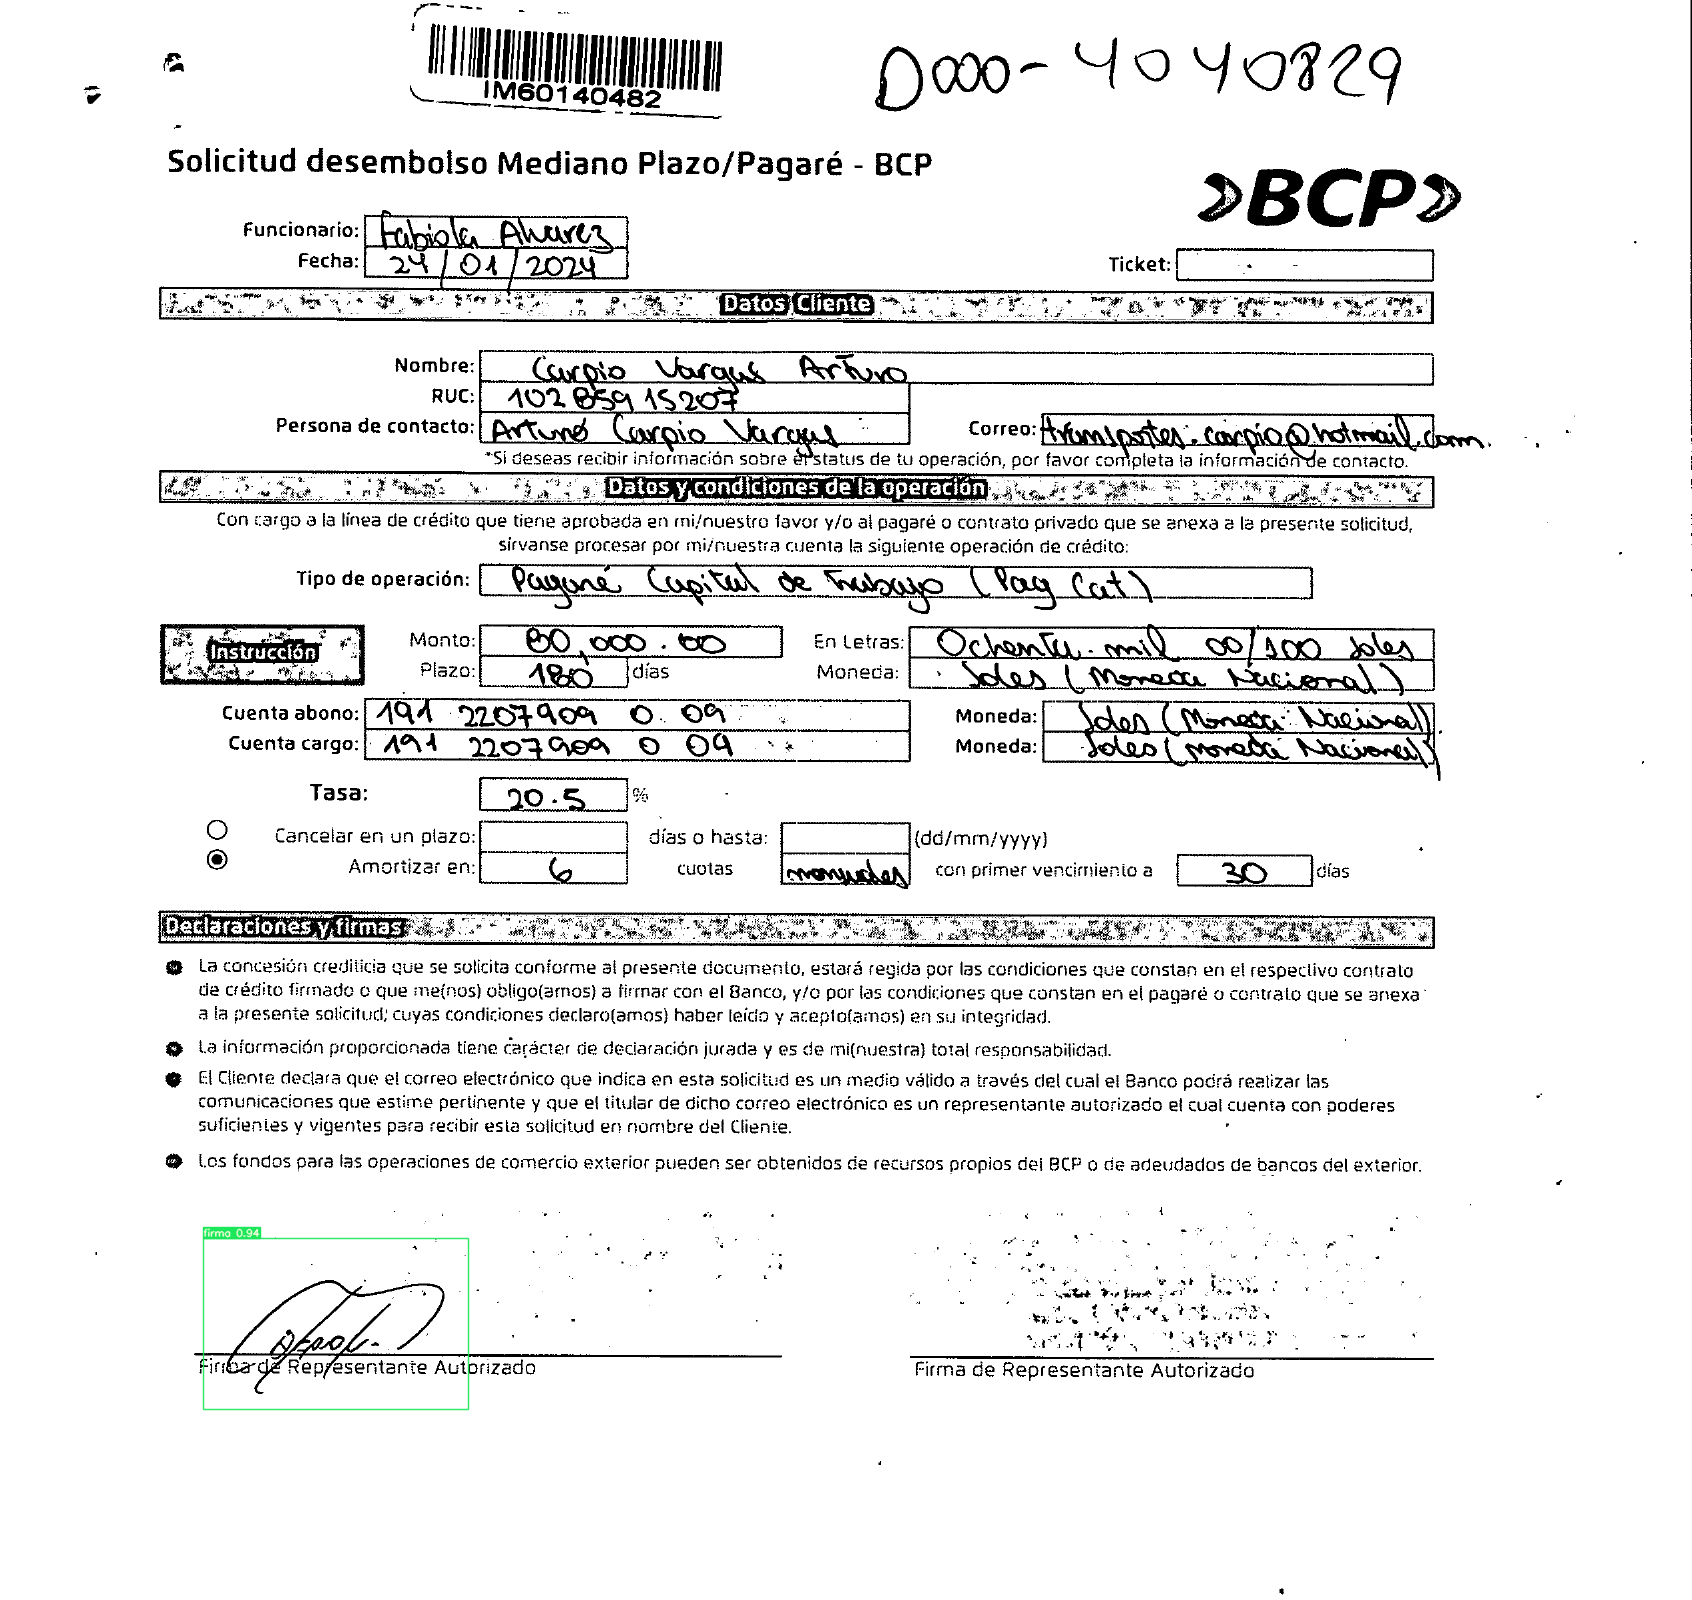 IM60140482
D000-4040829
Solicitud desembolso Mediano Plazo/Pagaré - BCP
BCP
Funcionario: Fabiola Alvarez
Fecha: 24/01/2024
Ticket:
Datos Cliente
Nombre: Carpio Vargas Arturo
RUC: 10285915207
Persona de contacto: Arturo Carpio Vargas Correo: transportes.carpio@hotmail.com.
*Si deseas recibir información sobre el status de tu operación, por favor completa la información de contacto.
Datos y condiciones de la operación
Con cargo a la línea de crédito que tiene aprobada en mi/nuestro favor y/o al pagaré o contrato privado que se anexa a la presente solicitud,
sírvanse procesar por mi/nuestra cuenta la siguiente operación de crédito:
Tipo de operación: Pagaré Capital de Trabajo (Pag Cat)
Instrucción
Monto: 80,000.00 En Letras: Ochenta mil 00/100 soles
Plazo: 180 días Moneda: Soles (Moneda Nacional)
Cuenta abono: 191 2207909 0 09 Moneda: Soles (Moneda Nacional)
Cuenta cargo: 191 2207909 0 09 Moneda: Soles (Moneda Nacional)
Tasa: 20.5 %
Cancelar en un plazo: días o hasta: (dd/mm/yyyy)
Amortizar en: 6 cuotas mensuales con primer vencimiento a 30 días
Declaraciones y firmas
La concesión crediticia que se solicita conforme al presente documento, estará regida por las condiciones que constan en el respectivo contrato
de crédito firmado o que me(nos) obligo(amos) a firmar con el Banco, y/o por las condiciones que constan en el pagaré o contrato que se anexa
a la presente solicitud; cuyas condiciones declaro(amos) haber leído y acepto(amos) en su integridad.
La información proporcionada tiene carácter de declaración jurada y es de mi(nuestra) total responsabilidad.
El Cliente declara que el correo electrónico que indica en esta solicitud es un medio válido a través del cual el Banco podrá realizar las
comunicaciones que estime pertinente y que el titular de dicho correo electrónico es un representante autorizado el cual cuenta con poderes
suficientes y vigentes para recibir esta solicitud en nombre del Cliente.
Los fondos para las operaciones de comercio exterior pueden ser obtenidos de recursos propios del BCP o de adeudados de bancos del exterior.
firma 0.94
Firma de Representante Autorizado
Firma de Representante Autorizado